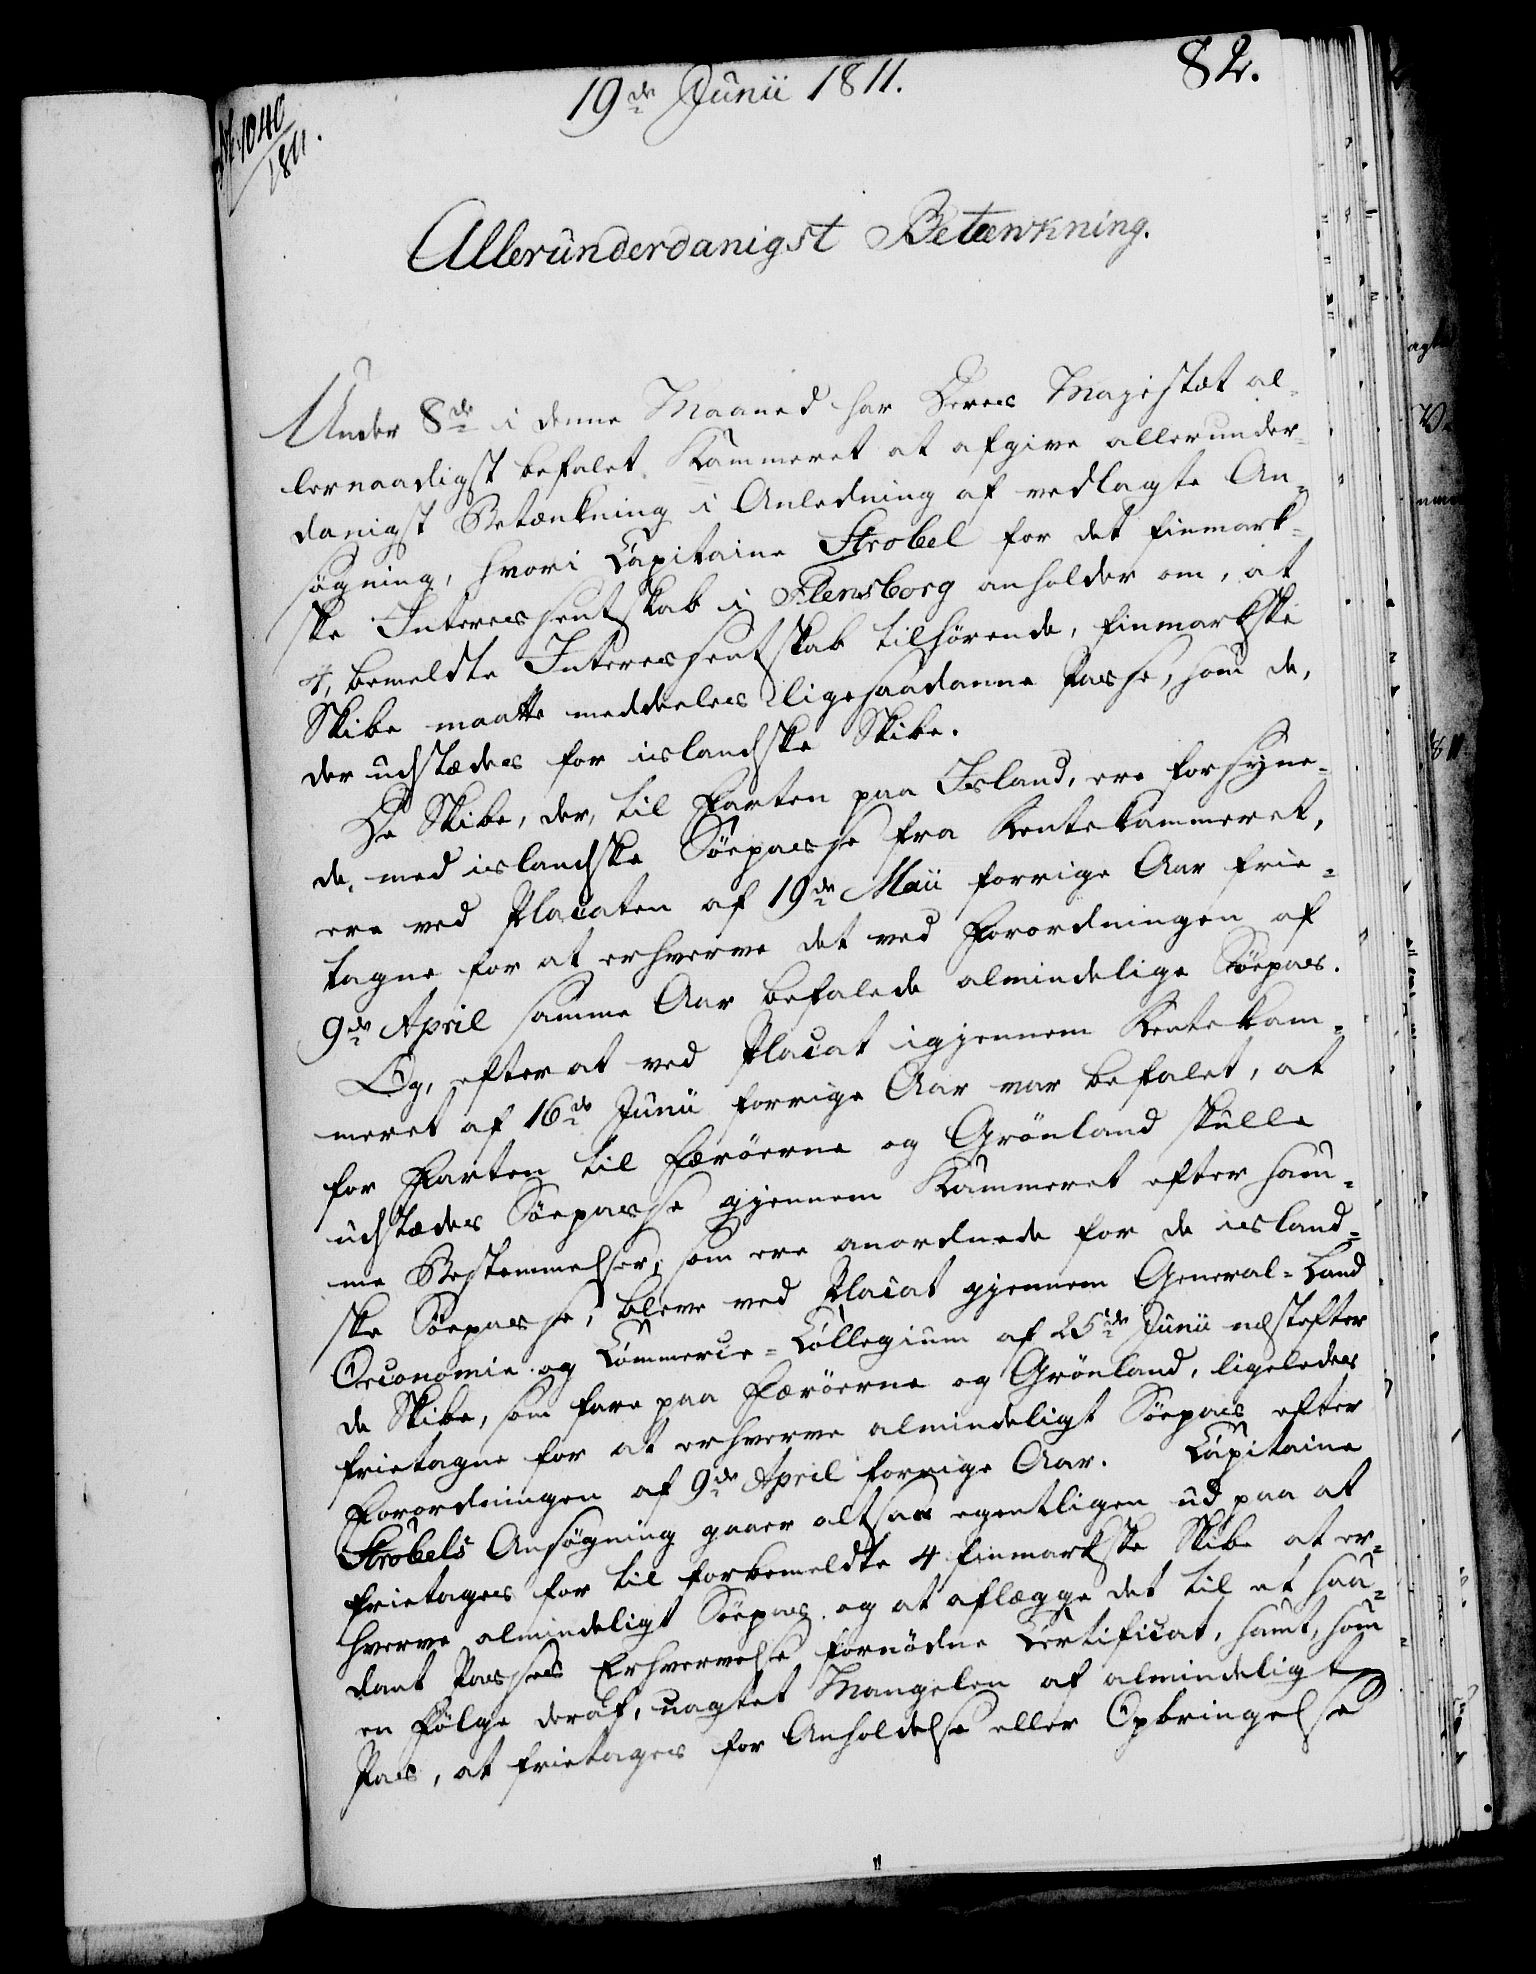 19de Junii 1811.
82.
1040
1811.
Alleründerdanigst Betænkning.
Under 8de i denne Maaned har Deres Majestæt al-
lernaadigst befalet Kammeret at afgive allerunder-
danigst Betænkning i Anledning af vedlagte An-
søgning, hvori Capitaine Strobel for det finmark-
ske Interessentskab i Flensborg anholder om, at
4, bemeldte Interessentskab tilhørende, finmarkske
Skibe maatte meddeeles ligesaadanne Passe, som de,
der udstædes for iislandske Skibe.
De Skibe, der, til Farten paa Island, ere forsyne-
de, med iislandske Söepasse fra Rentekammeret,
ere ved Placaten af 19de Maii forrige Aar frie-
tagne for at erhverve det ved Forordningen af
9de April samme Aar befalede almindelige Söepas.
Og, efterat ved Placat igjennem Rentekam-
meret af 16de Junii forrige Aar var befalet, at
for Farten til Færöerne og Grönland skulle
udstædes Söepasse gjennem Kammeret efter sam-
me Bestemmelser, som ere anordnede for de iisland-
ske Söepasse, bleve ved Placat gjennem General-Land
Oeconomie og Commerce-Collegium af 25de Junii næstefter
de Skibe, som fare paa Færöerne og Grönland, ligeledes
frietagne for at erhverve almindeligt Söepas efter
Forordningen af 9de April forrige Aar. Capitaine
Strobels Ansøgning gaaer altsaa egentligen ud paa at
frietages for til forbemeldte 4 finmarkske Skibe at er-
hverve almindeligt Söepas og at aflægge det til et saa-
dant Passes Erhvervelse fornödne Certificat, samt, som
en Fölge deraf, uagtet Mangelen af almindeligt
Pas, at frietages for Anholdelse eller Opbringelse